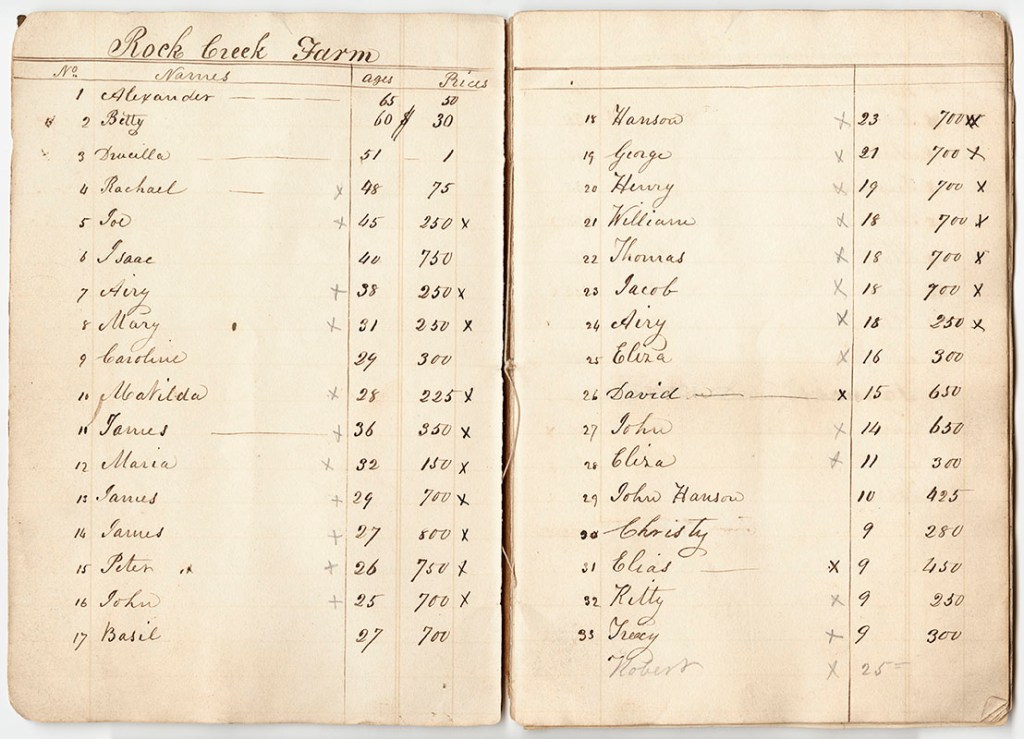 Rock Creek Farm
No. Names ages Prices
1 Alexander 65 50
2 Betty 60 $ 30
3 Drucilla 51 1
4 Rachael x 48 75
5 Joe x 45 250 x
6 Isaac 40 750
7 Airy x 38 250 x
8 Mary x 31 250 x
9 Caroline 29 300
10 Matilda x 28 225 x
11 James x 36 350 x
12 Maria x 32 150 x
13 James x 29 700 x
14 James x 27 800 x
15 Peter x 26 750 x
16 John x 25 700 x
17 Basil 27 700
18 Hanson x 23 700 x
19 George x 21 700 x
20 Henry x 19 700 x
21 William x 18 700 x
22 Thomas x 18 700 x
23 Jacob x 18 700 x
24 Airy x 18 250 x
25 Eliza x 16 300
26 David x 15 650
27 John x 14 650
28 Eliza x 11 300
29 John Hanson 10 425
30 Christy 9 280
31 Elias x 9 450
32 Kitty x 9 250
33 Trecy x 9 300
Robert x 25